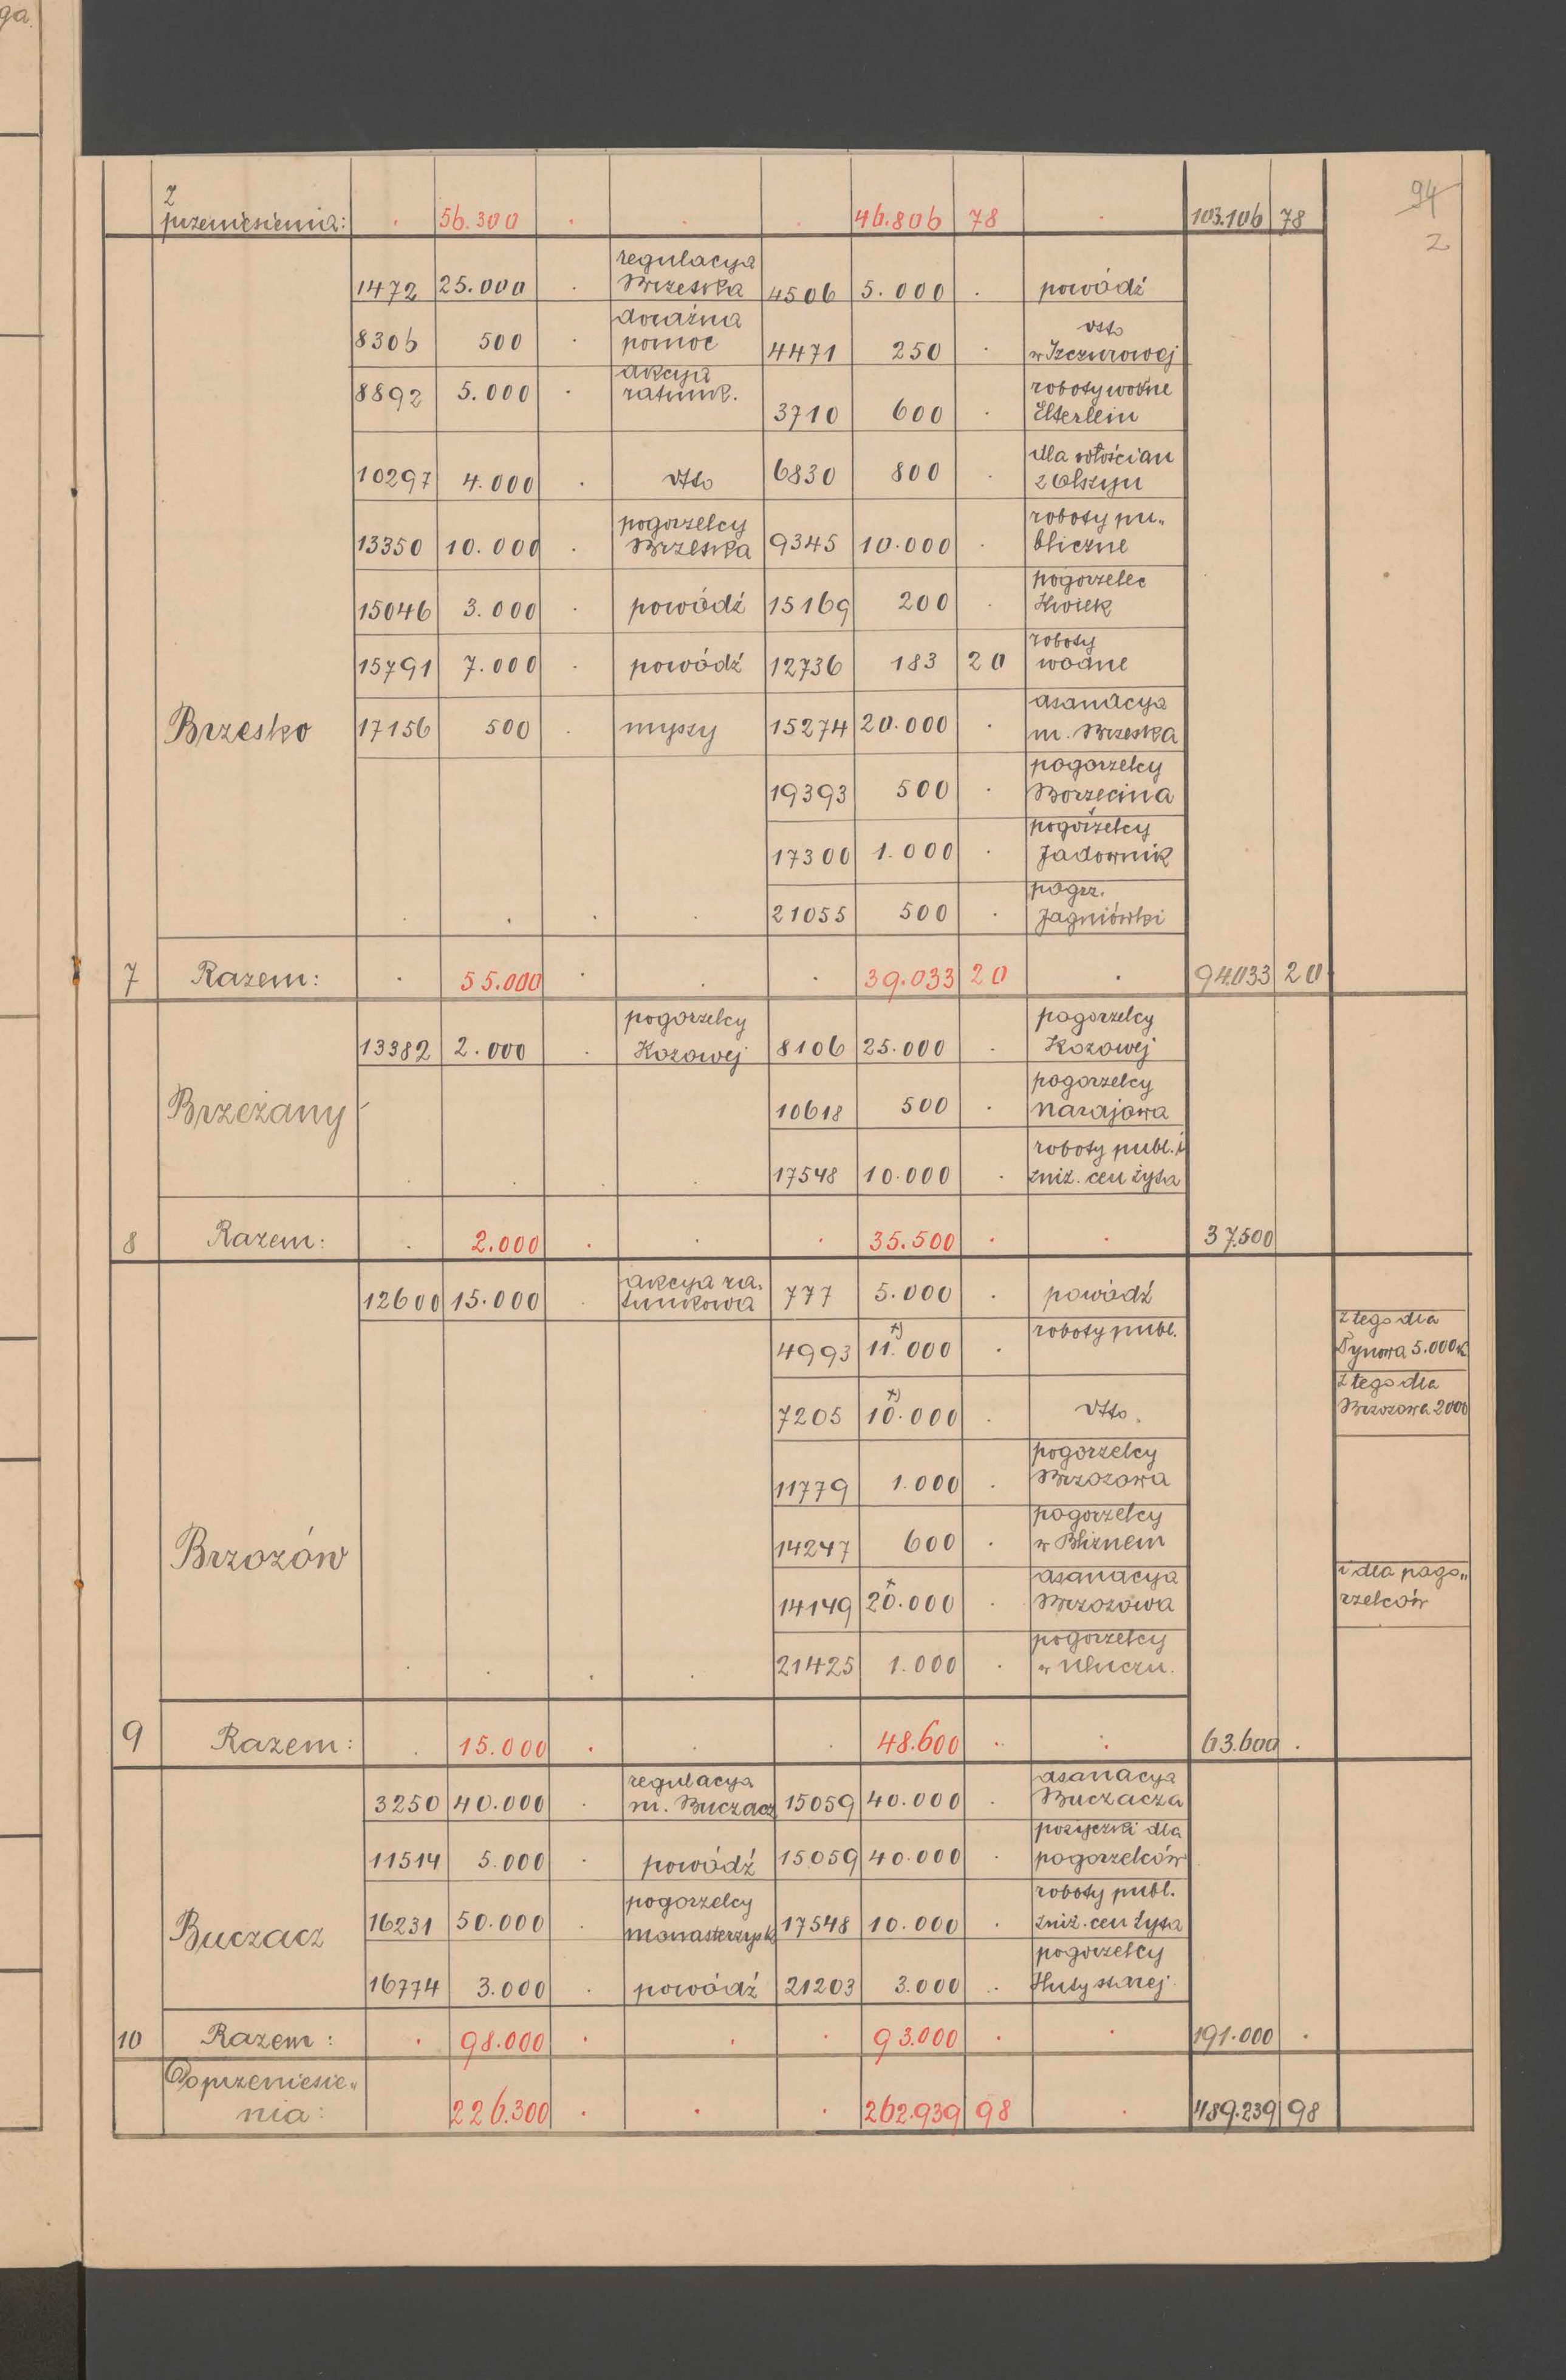 ga.
94
2
z
przeniesienia: . 56.300 . . . 46.806 78 . 103.106 78
regulacya
1472 25.000 . Brzeska 4506 5.000 . powódź
doraźna
8306 500 . pomoc 4471 250 . dtto
w Szczurowej
akcya
8892 5.000 . ratunk. 3710 600 . roboty wodne
Elterlein
10297 4.000 . dtto 6830 800 . dla włościan
z Olszyn
pogorzelcy
13350 10.000 . Brzeska 9345 10.000 . roboty pu„
bliczne
15046 3.000 . powódź 15169 200 . pogorzelec
15791 7.000 . powódź 12736 183 20 roboty
wodne
Brzesko 17156 500 . myszy 15274 20.000 . asanacya
m. Brzeska
19393 500 . pogorzelcy
Borzęcina
17300 1.000 . pogorzelcy
Jadownik
. . . . 21055 500 . pogrz.
Jagniówki
7 Razem: . 55.000 . . . 39.033 20 . 94.033 20
pogorzelcy
13382 2.000 . Kozowej 8106 25.000 . pogorzelcy
Kozowej
Brzeżany 10618 500 . pogorzelcy
Narajowa
. . . . 17548 10.000 . roboty publ. i
zniż. cen żyta
8 Razem: . 2.000 . . . 35.500 . . 37.500
akcya ra„
12600 15.000 . tunkowa 777 5.000 . powódź
4993 11.000 x) . roboty publ. z tego dla
Dynowa 5.000 K
7205 10.000 x) . dtto. z tego dla
Brzozowa 2000
11779 1.000 . pogorzelcy
Brzozowa
Brzozów 14247 600 . pogorzelcy
w Bliznem
14149 20.000 x . asanacya
Brzozowa i dla pogo„
rzelców
. . . . 21425 1.000 . pogorzelcy
w Uluczu.
9 Razem: . 15.000 . . . 48.600 . . 63.600 .
regulacya
3250 40.000 . m. Buczacz 15059 40.000 . asanacya
Buczacza
11514 5.000 . powódź 15059 40.000 . pożyczki dla
pogorzelców
pogorzelcy
Buczacz 16231 50.000 . Monasterzysk 17548 10.000 . roboty publ.
zniż. cen żyta
16774 3.000 . powódź 21203 3.000 . pogorzelcy
Huty starej.
10 Razem: . 98.000 . . . 93.000 . . 191.000 .
Do przeniesie„
nia: 226.300 . . . 262.939 98 . 489.239 98